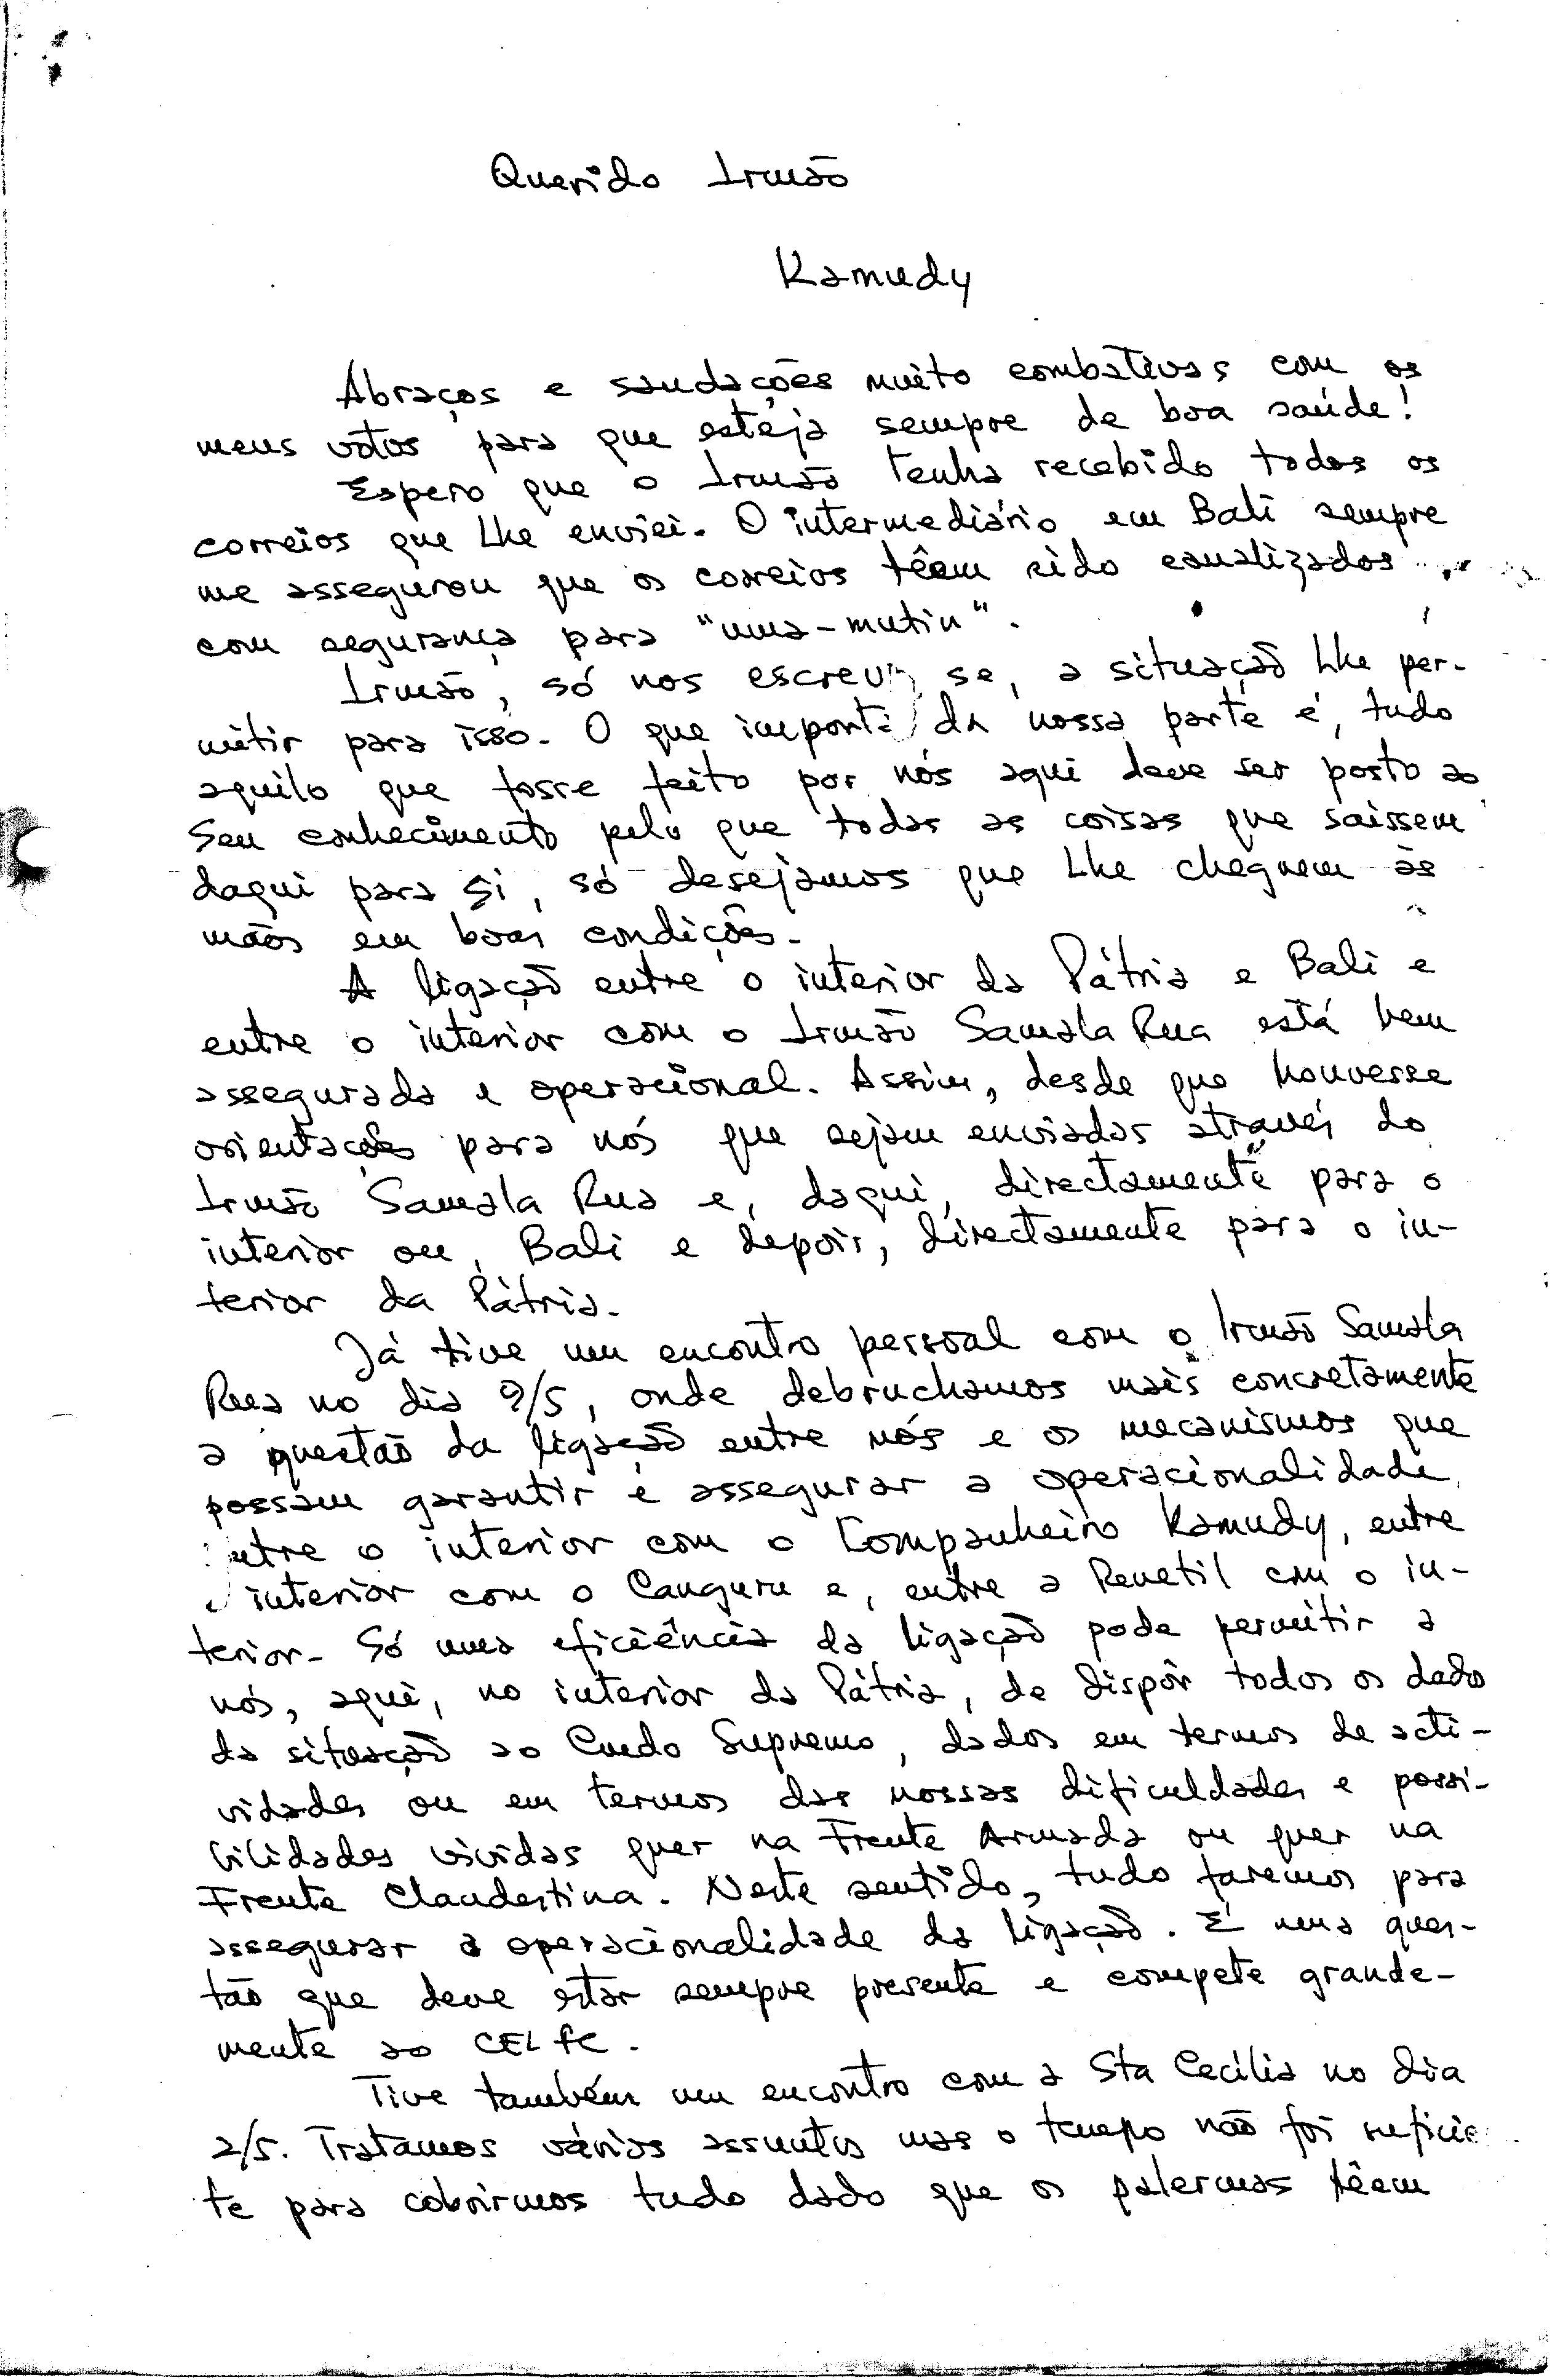 Querido Irmão
Kamudy
Abraços e saudações muito combativas com os
meus votos para que esteja sempre de boa saúde!
Espero que o Irmão tenha recebido todos os
correios que Lhe enviei. O intermediário em Bali sempre
me assegurou que os correios têem sido canalizados
com segurança para "uma-mutin".
Irmão, só nos escreva se, a situação Lhe per-
mitir para isso. O que importa da nossa parte é, tudo
aquilo que fosse feito por nós aqui deve ser posto ao
Seu conhecimento pelo que todas as coisas que saissem
daqui para Si, só desejamos que Lhe cheguem às
mãos em boas condições.
A ligação entre o interior da Pátria e Bali e
entre o interior com o Irmão Samala Rua está bem
assegurada e operacional. Assim, desde que houvesse
orientações para nós que sejam enviadas através do
Irmão Samala Rua e, daqui, directamente para o
interior ou, Bali e depois, directamente para o in-
terior da Pátria.
Já tive um encontro pessoal com o Irmão Samala
Rua no dia 9/5, onde debruchamos mais concretamente
a questão da ligação entre nós e os mecanismos que
possam garantir e assegurar a operacionalidade
entre o interior com o Companheiro Kamudy, entre
o interior com o Canguru e, entre a Renetil com o in-
terior. Só uma eficiência da ligação pode permitir a
nós, aqui, no interior da Pátria, de dispôr todos os dados
da situação ao Cmdo Supremo, dados em termos de acti-
vidades ou em termos das nossas dificuldades e possi-
bilidades vividas quer na Frente Armada ou quer na
Frente Clandestina. Neste sentido, tudo faremos para
assegurar a operacionalidade da ligação. É uma ques-
tão que deve estar sempre presente e compete grande-
mente ao CEL FC.
Tive também um encontro com a Sta Cecília no dia
2/5. Tratamos vários assuntos mas o tempo não foi suficie
te para cobrirmos tudo dado que os palermas têem